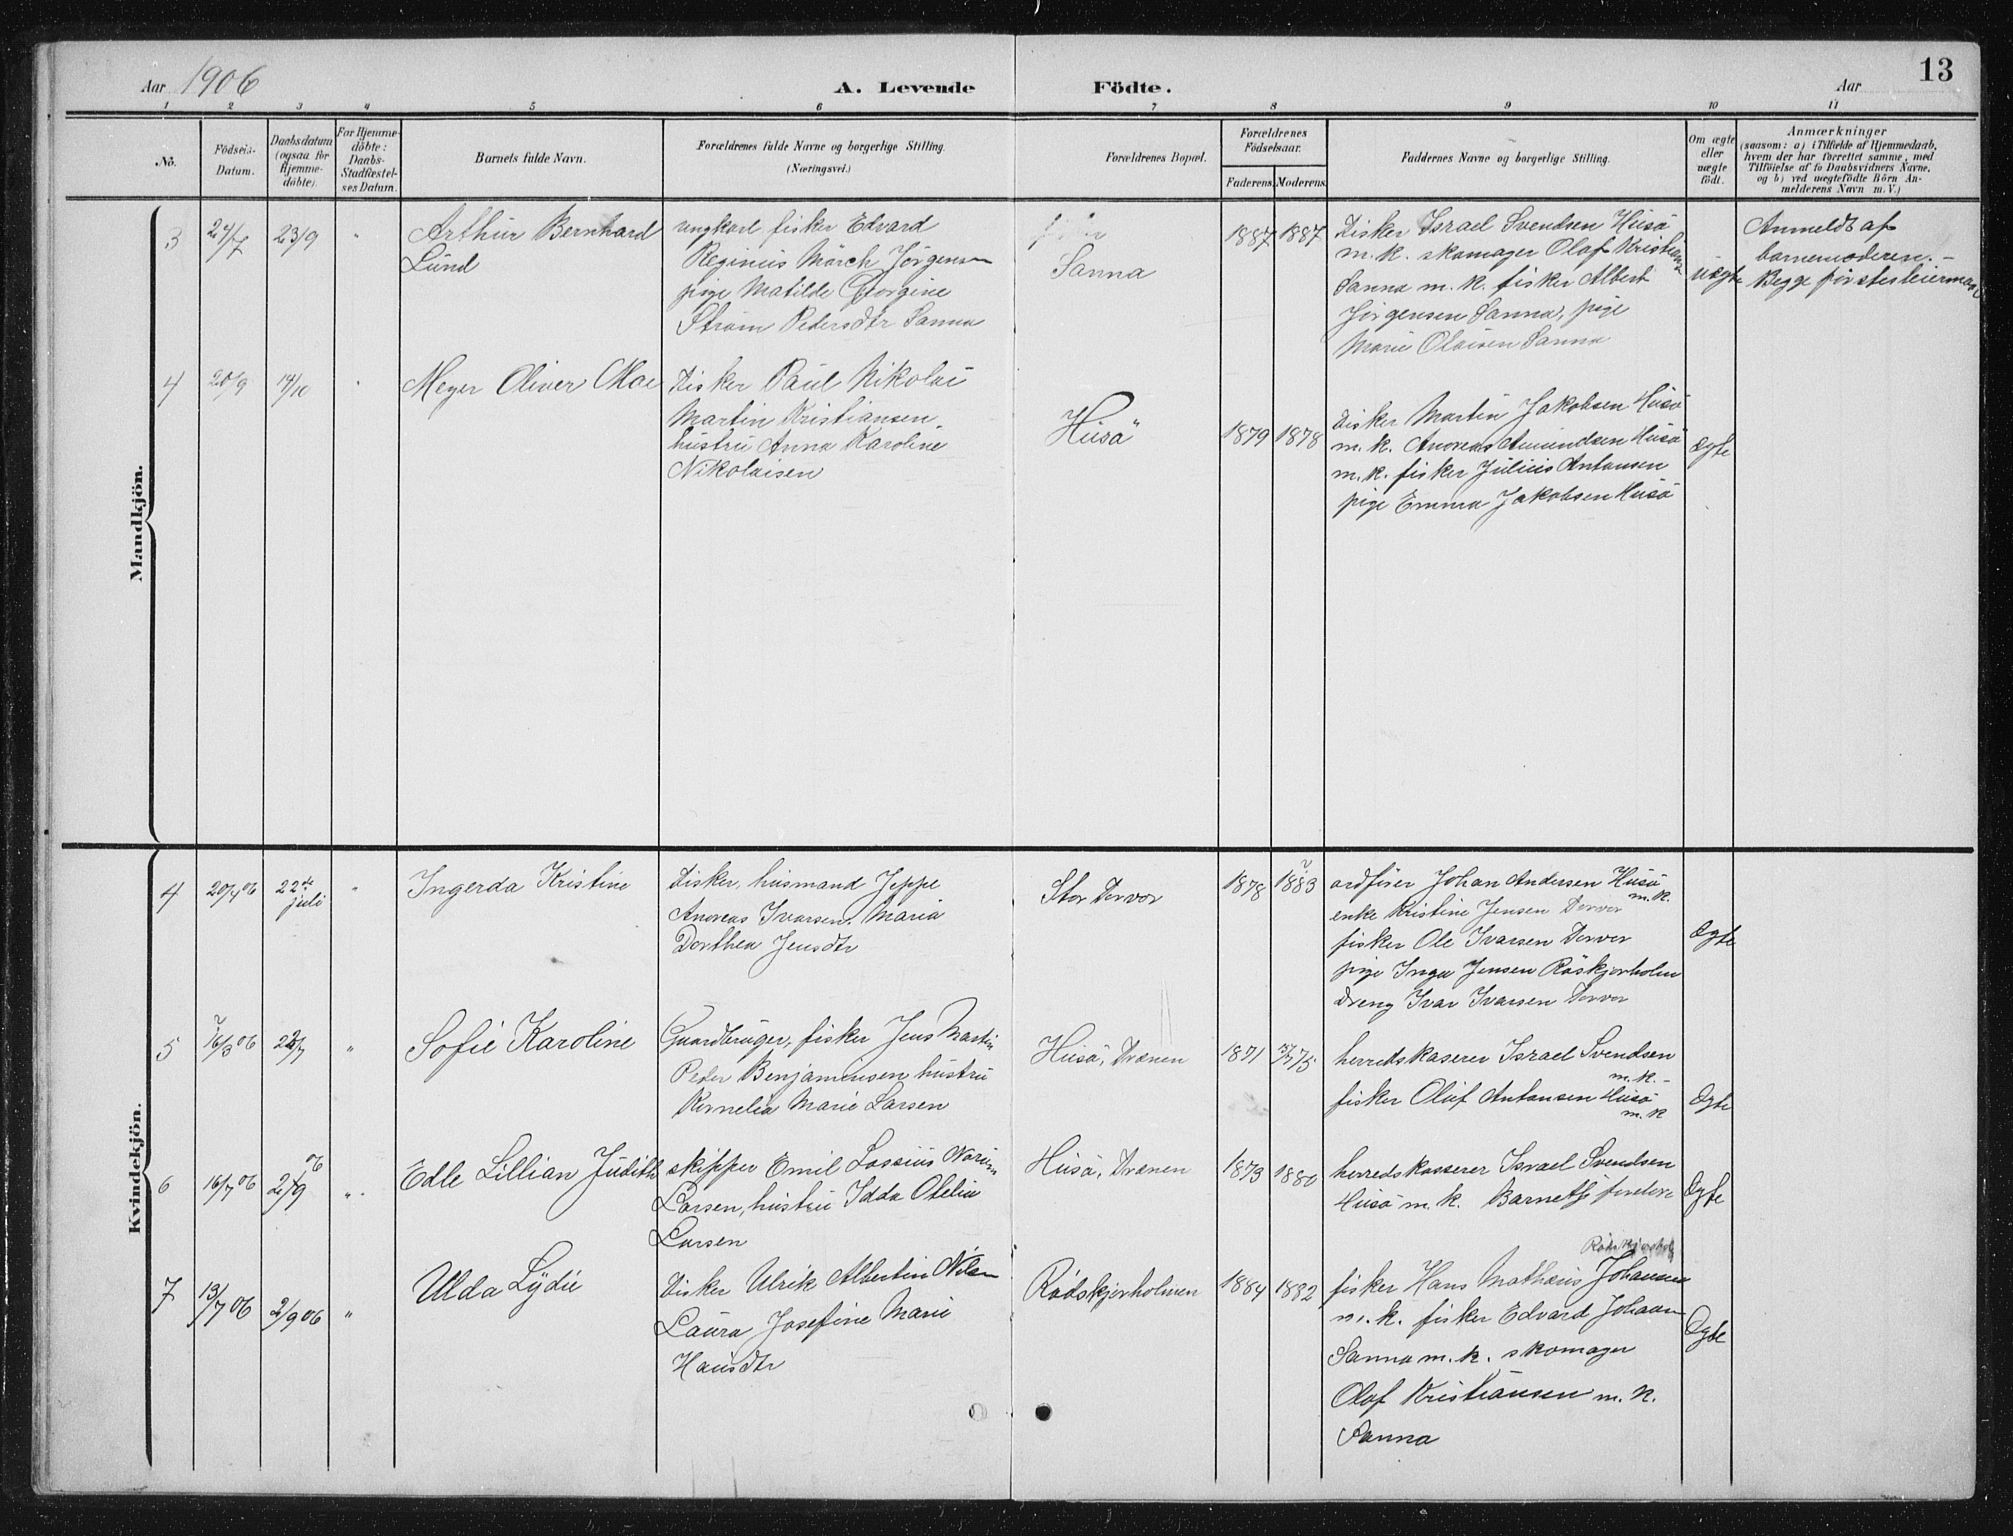 Aar 1906
A. Levende Födte.
Aar
13
1 2 3 4 5 6 7 8 9 10 11
No.
Födsels-Datum.
Daabsdatum (ogsaa for Hjemmedöbte).
For Hjemmedöbte: Daabs-Stadfæstelses Datum.
Barnets fulde Navn.
Forældrenes fulde Navne og borgerlige Stilling. (Næringsvei.)
Forældrenes Bopæl.
Forældrenes Födselsaar.
Faderens. Moderens.
Faddernes Navne og borgerlige Stilling.
Om ægte eller uægte födt.
Anmærkninger
(saasom: a) i Tilfælde af Hjemmedaab, hvem der har forrettet samme, med Tilföielse af to Daabsvidners Navne, og b) ved uægtefödte Börn Anmelderens Navn m. V.)
Mandkjön.
3 24/7 23/9 "
Arthur Bernhard
Lund
ungkarl fisker Edvard
Reginius Mörch Jörgensen
pige Matilde Georgine
Ström Pedersdtr Sanna
Sanna
1887 1887
Fisker Israel Svendsen Husö
m. k. skomager Olaf Kristians
Sanna m. k. fisker Albert
Jörgensen Sanna, pige
Marie Olaisen Sanna
Uægte
Anmeldt af
barnemoderen. -
Begge förstesleiermaal
4 20/9 14/10 "
Meyer Oliver Moe
Fisker Paul Nikolai
Martin Kristiansen
hustru Anna Karoline
Nikolaisen
Husö
1879 1878
Fisker Martin Jakobsen Husö
m. k. Andreas Amundsen Husö
m. k. fisker Julius Antonsen
pige Emma Jakobsen Husö
Ægte
Kvindekjön.
4 20/4 06 22de juli "
Ingerda Kristine
Fisker, husmand Jeppe
Andreas Ivarsen. Maria
Dorthea Jensdtr
Stor Dervor
1878 1883
ordförer Johan Andersen Husö
m. k.
enke Kristine Jensen Dervor
fisker Ole Ivarsen Dervor
pige Inga Jensen Röskjerholm
dreng Ivar Ivarsen Dervor
Ægte
5 16/3 06 22/7 "
Sofie Karoline
Gaardbruger, fisker Jens Martin
Peder Benjaminsen hustru
Kornelia Marie Larsen
Husö, Trænen
1871 75
herredskaserer Israel Svendsen
m. k. -
fisker Oluf Antonsen Husö
m. k
Ægte
6 16/7 06 2/9 06 "
Edle Lillian Judith
skipper Emil Lossius
Larsen, hustru Idda Otelia
Larsen
Husö, Trænen
1873 1880
herredskasserer Israel Svendsen
Husö m. k. Barnets foreldre
Ægte
7 13/7 06 2/9 06 "
Ulda Lydie
Fisker Ulrik Albertin Nilsen
Laura Josefine Marie
Hansdtr
Rödskjerholmen
1884 1882
fisker Hans Mathæus Johansen
m. k. fisker Edvard Johansen
Sanna m. k. skomager
Olaf Kristiansen m. k.
Sanna
Ægte